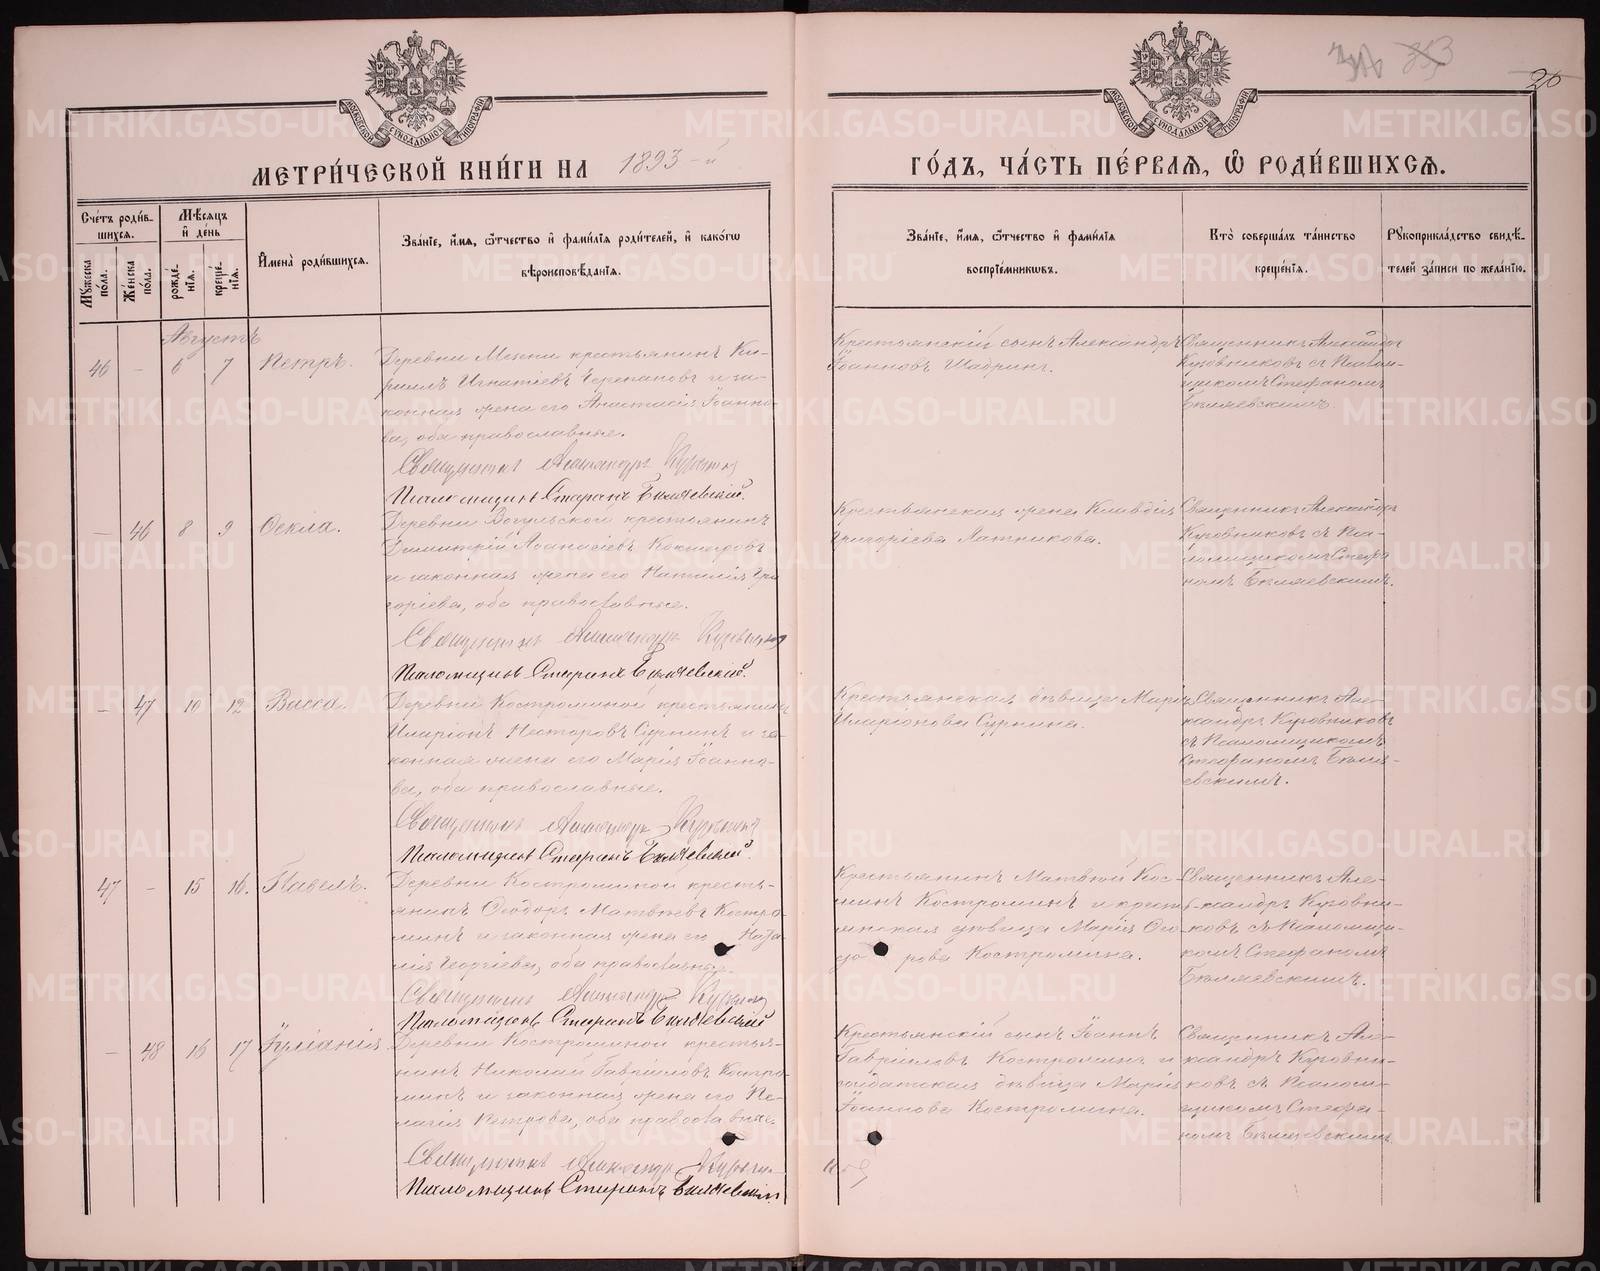 МЕТРИ́ЧЕСКОЙ КНИ́ГИ НА 1893-й
ГО́ДЪ, ЧА́СТЬ ПЕ́РВАЯ, Ѡ РОДИ́ВШИХСЯ.
26
Сче́тъ роди́в-
шихся.
Му́жеска по́ла.
Же́нска по́ла.
Мѣ́сяцъ и́ де́нь
рожде́нїя.
креще́нїя.
И҆мена̀ роди́вшихся.
Зва́нїе, и҆́мя, ѻ҆́тчество и҆ фами́лїя роди́телей, и҆ како́гѡ
вѣроисповѣ́данїя.
Зва́нїе, и҆́мя, ѻ҆́тчество и҆ фами́лїя
воспрїе́мниковъ.
Кто̀ соверша́лъ та́инство
креще́нїя.
Рукоприкла́дство свидѣ́-
телей за́писи по жела́нїю.
Августъ
46 - 6 7 Петръ.
Деревни крестьянинъ Ки-
риллъ Игнатіевъ Черепановъ и за-
конная жена его Анастасія Іоанно-
ва, оба православные.
Священникъ Александръ
Псаломщикъ Стефанъ Бѣляевскій.
Крестьянскій сынъ Александръ
Іоанновъ Шадринъ.
Священникъ Александръ
Куровниковъ съ Псалом-
щикомъ Стефаномъ
Бѣляевскимъ.
- 46 8 9 Ѳекла.
Деревни Вогульской крестьянинъ
Димитрій Аѳанасіевъ
и законная жена его Наталія Гри-
горіева, оба православные.
Священникъ Александръ
Псаломщикъ Стефанъ Бѣляевскій.
Крестьянская жена Клавдія
Григоріева Латникова.
Священникъ Александръ
Куровниковъ съ Пса-
ломщикомъ Стефа-
номъ Бѣляевскимъ.
- 47 10 12 Васса.
Деревни Костроминой крестьянинъ
Иларіонъ Несторовъ Суринъ и за-
конная жена его Марія Іоанно-
ва, оба православные.
Священникъ Александръ
Псаломщикъ Стефанъ Бѣляевскій.
Крестьянская дѣвица Марія
Иларіонова Сурнина.
Священникъ Але-
ксандръ Куровниковъ
съ Псаломщикомъ
Стефаномъ Бѣля-
евскимъ.
47 - 15 16. Павелъ.
Деревни Костроминой кресть-
янинъ Ѳеодоръ Матвѣевъ Костро-
минъ и законная жена его Ната-
лія Георгіева, оба православные.
Священникъ Александръ
Псаломщикъ Стефанъ Бѣляевскій
Крестьянинъ Матвѣй
Костроминъ и кресть-
янская дѣвица Марія Ѳео-
до рова Костромина.
Священникъ Але-
ксандръ Куровни-
ковъ съ Псаломщи-
комъ Стефаномъ
Бѣляевскимъ.
- 48 16 17 Іуліанія
Деревни Костроминой крестья-
нинъ Николай Гавріиловъ Костро-
минъ и законная жена его Пе-
лагія Петрова, оба православные.
Священникъ Александръ
Псаломщикъ Стефанъ Бѣляевскій
Крестьянскій сынъ Іоаннъ
Гавріиловъ Костроминъ и
солдатская дѣвица Марія
Іоаннова Костромина.
Священникъ Але-
ксандръ Куровни-
ковъ съ Псалом-
щикомъ Стефа-
номъ Бѣляевскимъ.
METRIKI.GASO-URAL.RU